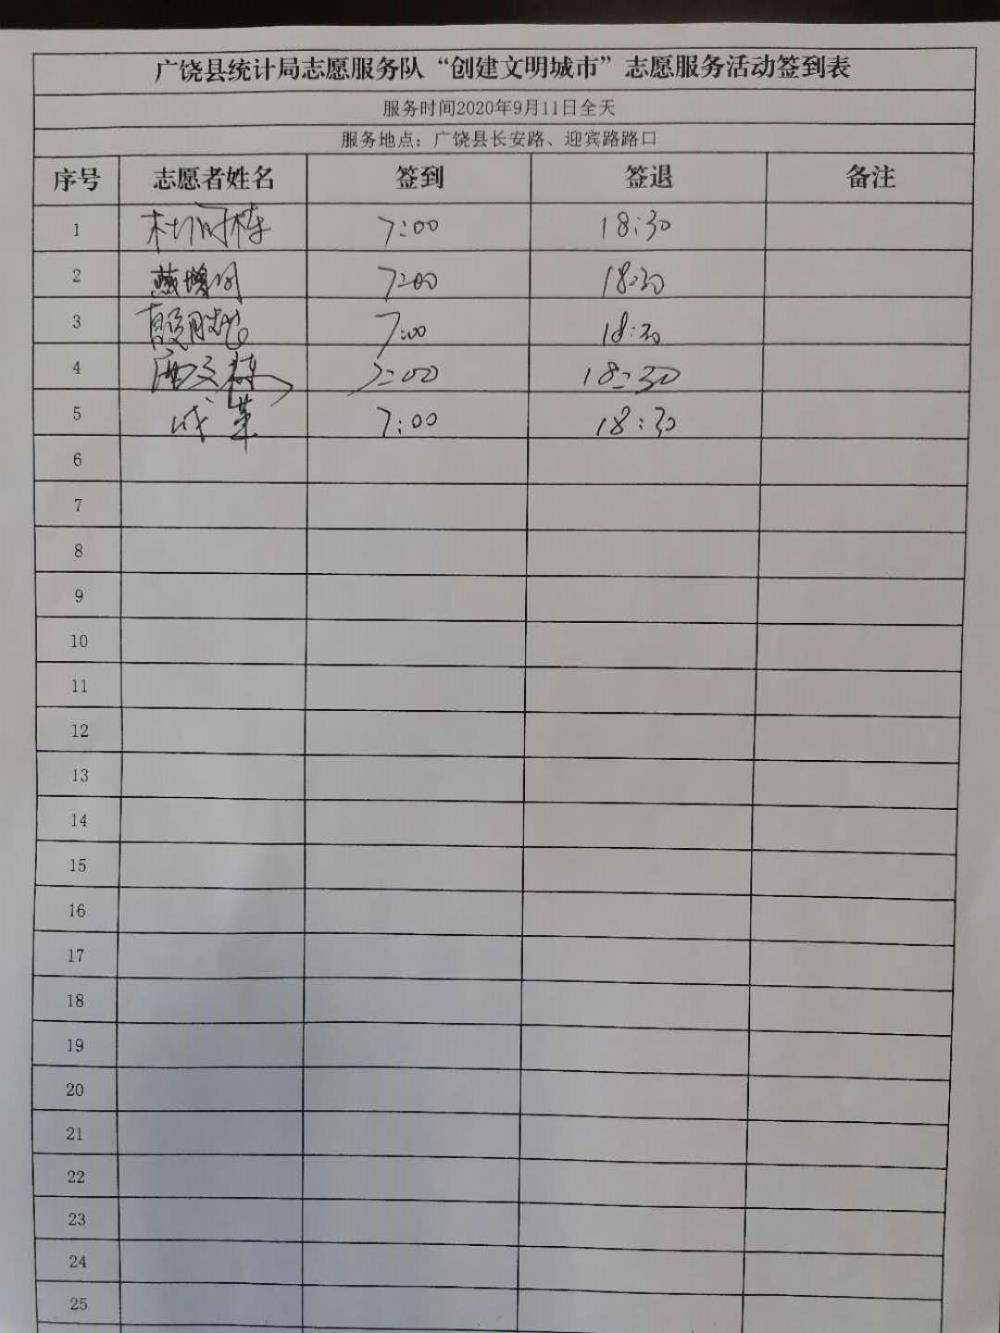 广饶县统计局志愿服务队“创建文明城市”志愿服务活动签到表
服务时间2020年9月11日全天
服务地点：广饶县长安路、迎宾路路口
序号 志愿者姓名 签到 签退 备注
1 7:00 18:30
2 7:00 18:30
3 7:00 18:30
4 7:00 18:30
5 成革 7:00 18:30
6
7
8
9
10
11
12
13
14
15
16
17
18
19
20
21
22
23
24
25